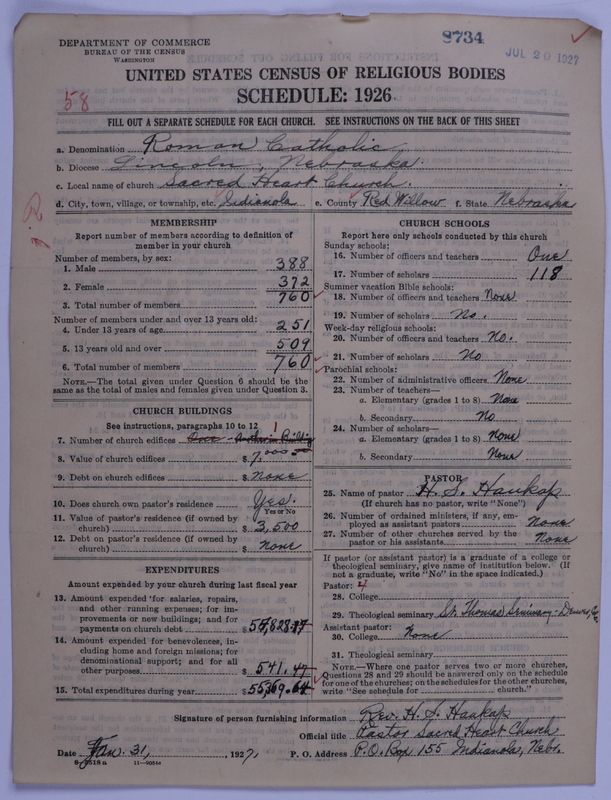 DEPARTMENT OF COMMERCE
BUREAU OF THE CENSUS
WASHINGTON
8734
JUL 20 1927
UNITED STATES CENSUS OF RELIGIOUS BODIES
SCHEDULE: 1926
58
FILL OUT A SEPARATE SCHEDULE FOR EACH CHURCH. SEE INSTRUCTIONS ON THE BACK OF THIS SHEET
a. Denomination Roman Catholic
b. Diocese Lincoln, Nebraska.
c. Local name of church Sacred Heart Church.
d. City, town, village, or township, etc. Indianola e. County Red Willow f. State Nebraska
MEMBERSHIP
Report number of members according to definition of
member in your church
Number of members, by sex:
1. Male 388
2. Female 372
3. Total number of members 760
Number of members under and over 13 years old:
4. Under 13 years of age 251
5. 13 years old and over 509
6. Total number of members 760
NOTE.—The total given under Question 6 should be
same as the total of males and females given under Question 3.
CHURCH BUILDINGS
See instructions, paragraphs 10 to 12
7. Number of church edifices 1
8. Value of church edifices $ 7,000
9. Debt on church edifices $ none
10. Does church own pastor's residence Yes.
Yes or No
11. Value of pastor's residence (if owned by
church) $ 3,500
12. Debt on pastor's residence (if owned by
church) $ none
EXPENDITURES
Amount expended by your church during last fiscal year
13. Amount expended for salaries, repairs,
and other running expenses; for im-
provements or new buildings; and for
payments on church debt $
14. Amount expended for benevolences, in-
cluding home and foreign missions; for
denominational support; and for all
other purposes $ 541.47
15. Total expenditures during year $
CHURCH SCHOOLS
Report here only schools conducted by this church
Sunday schools:
16. Number of officers and teachers One
17. Number of scholars 118
Summer vacation Bible schools:
18. Number of officers and teachers None
19. Number of scholars No.
Week-day religious schools:
20. Number of officers and teachers No.
21. Number of scholars No
Parochial schools:
22. Number of administrative officers None
23. Number of teachers—
a. Elementary (grades 1 to 8) None
b. Secondary No
24. Number of scholars—
a. Elementary (grades 1 to 8) None
b. Secondary None
PASTOR
25. Name of pastor H. S. Haukap
(If church has no pastor, write "None")
26. Number of ordained ministers, if any, em-
ployed as assistant pastors None
27. Number of other churches served by the
pastor or his assistants None
If pastor (or assistant pastor) is a graduate of a college or
theological seminary, give name of institution below. (If
not a graduate, write "No" in the space indicated.)
Pastor:
28. College
29. Theological seminary St. Thomas Seminary - Denver, Co.
Assistant pastor:
30. College None
31. Theological seminary
NOTE.—Where one pastor serves two or more churches,
Questions 28 and 29 should be answered only on the schedule
for one of the churches; on the schedules for the other churches,
write "See schedule for church."
Signature of person furnishing information Rev. H. S. Haukap
Official title Pastor Sacred Heart Church
Date Jan. 31, 1927, P. O. Address P.O. Box 155 Indianola, Nebr.
8-5518a 11—90554